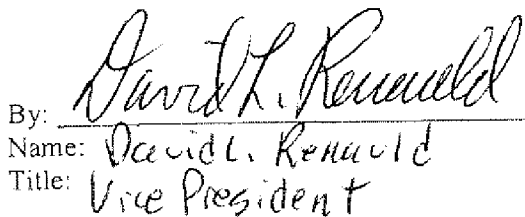 By: David L. Renauld
Name: David L. Renauld
Title: Vice President